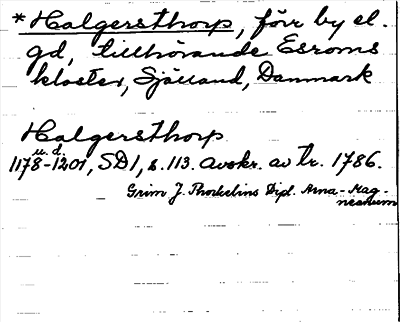 *Halgersthorp, förr by el.
gd, tillhörande Esroms
kloster, Själland, Danmark
Halgersthorp
u. d.
1178-1201, SD1, s. 113. Avskr. av tr. 1786.
Grim J. Thorkelins Dipl. Arna-Mag-
neanum